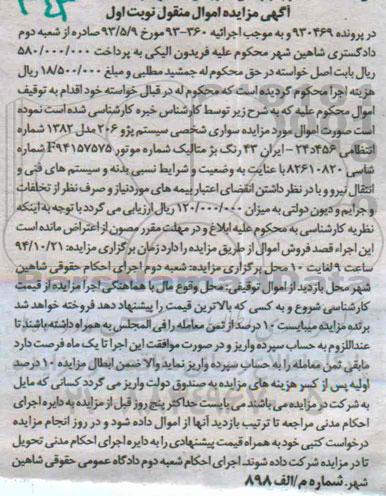 آگهی مزایده اموال منقول نوبت اول
در پرونده ۹۳۰۴۶۹ و به موجب اجرائیه ۳۶۰-۹۳ مورخ ۹۳/۵/۹ صادره از شعبه دوم
دادگستری شاهین شهر محکوم علیه فریدون الیکی به پرداخت ۵۸۰/۰۰۰/۰۰۰
ریال بابت اصل خواسته در حق محکوم له جمشید مطلبی و مبلغ ۱۸/۵۰۰/۰۰۰ ریال
هزینه اجرا محکوم گردیده است که محکوم له در قبال خواسته خود اقدام به توقیف
اموال محکوم علیه که به شرح زیر توسط کارشناس خبره کارشناسی شده است نموده
است صورت اموال مورد مزایده سواری شخصی سیستم پژو ۲۰۶ مدل ۱۳۸۲ شماره
انتظامی ۴۵۶د۲۴ - ایران ۴۳ رنگ بژ متالیک شماره موتور F۹۴۱۵۷۵۷۵ شماره
شاسی ۸۲۶۱۰۸۲۰ با عنایت به وضعیت و شرایط نسبی بدنه و سیستم های فنی و
انتقال نیرو و با در نظر داشتن انقضای اعتبار بیمه های موردنیاز و صرف نظر از تخلفات
و جرایم و دیون دولتی به میزان ۱۲۰/۰۰۰/۰۰۰ ریال ارزیابی می گردد با توجه به اینکه
نظریه کارشناسی به محکوم علیه ابلاغ و در مهلت مقرر مصون از اعتراض مانده است
این اجراء قصد فروش اموال از طریق مزایده را دارد زمان برگزاری مزایده: ۹۴/۱۰/۲۱
ساعت ۹ لغایت ۱۰ محل برگزاری مزایده: شعبه دوم اجرای احکام حقوقی شاهین
شهر محل بازدید از اموال توقیفی: محل وقوع مال با هماهنگی اجرا مزایده از قیمت
کارشناسی شروع و به کسی که بالاترین قیمت را پیشنهاد دهد فروخته خواهد شد
برنده مزایده میبایست ۱۰ درصد از ثمن معامله را فی المجلس به همراه داشته باشند تا
عنداللزوم به حساب سپرده واریز و در صورت موافقت این اجرا تا یک ماه فرصت دارد
مابقی ثمن معامله را به حساب سپرده واریز نماید والا ضمن ابطال مزایده ۱۰ درصد
اولیه پس از کسر هزینه های مزایده به صندوق دولت واریز می گردد کسانی که مایل
به شرکت در مزایده می باشند می بایست حداکثر پنج روز قبل از مزایده به دایره اجرای
احکام مدنی مراجعه تا ترتیب بازدید آنها از اموال داده شود و در روز انجام مزایده
درخواست کتبی خود به همراه قیمت پیشنهادی را به دایره اجرای احکام مدنی تحویل
تا در مزایده شرکت داده شوند. اجرای احکام شعبه دوم دادگاه عمومی حقوقی شاهین
شهر. شماره م/الف ۸۹۸